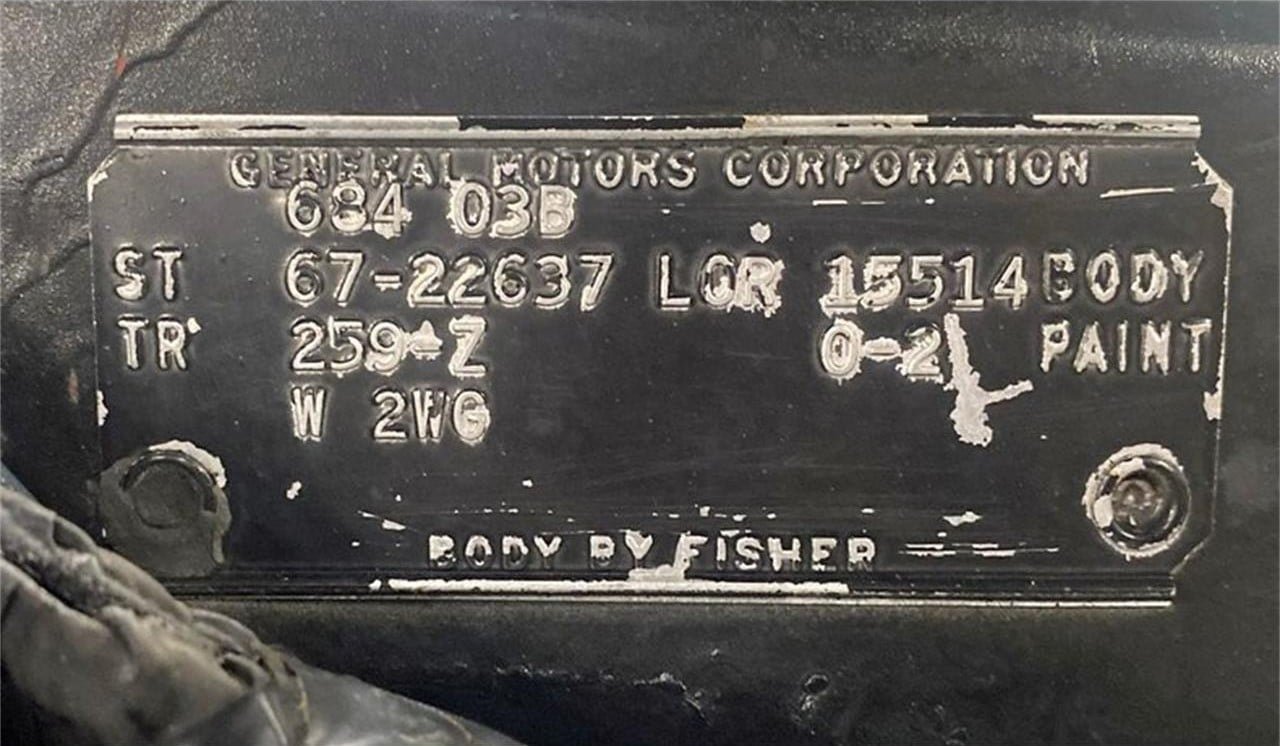 GENERAL MOTORS CORPORATION
684 03B
ST 67-22637 LOR 15514 BODY
TR 259-Z 0-2 PAINT
W 2WG
BODY BY FISHER